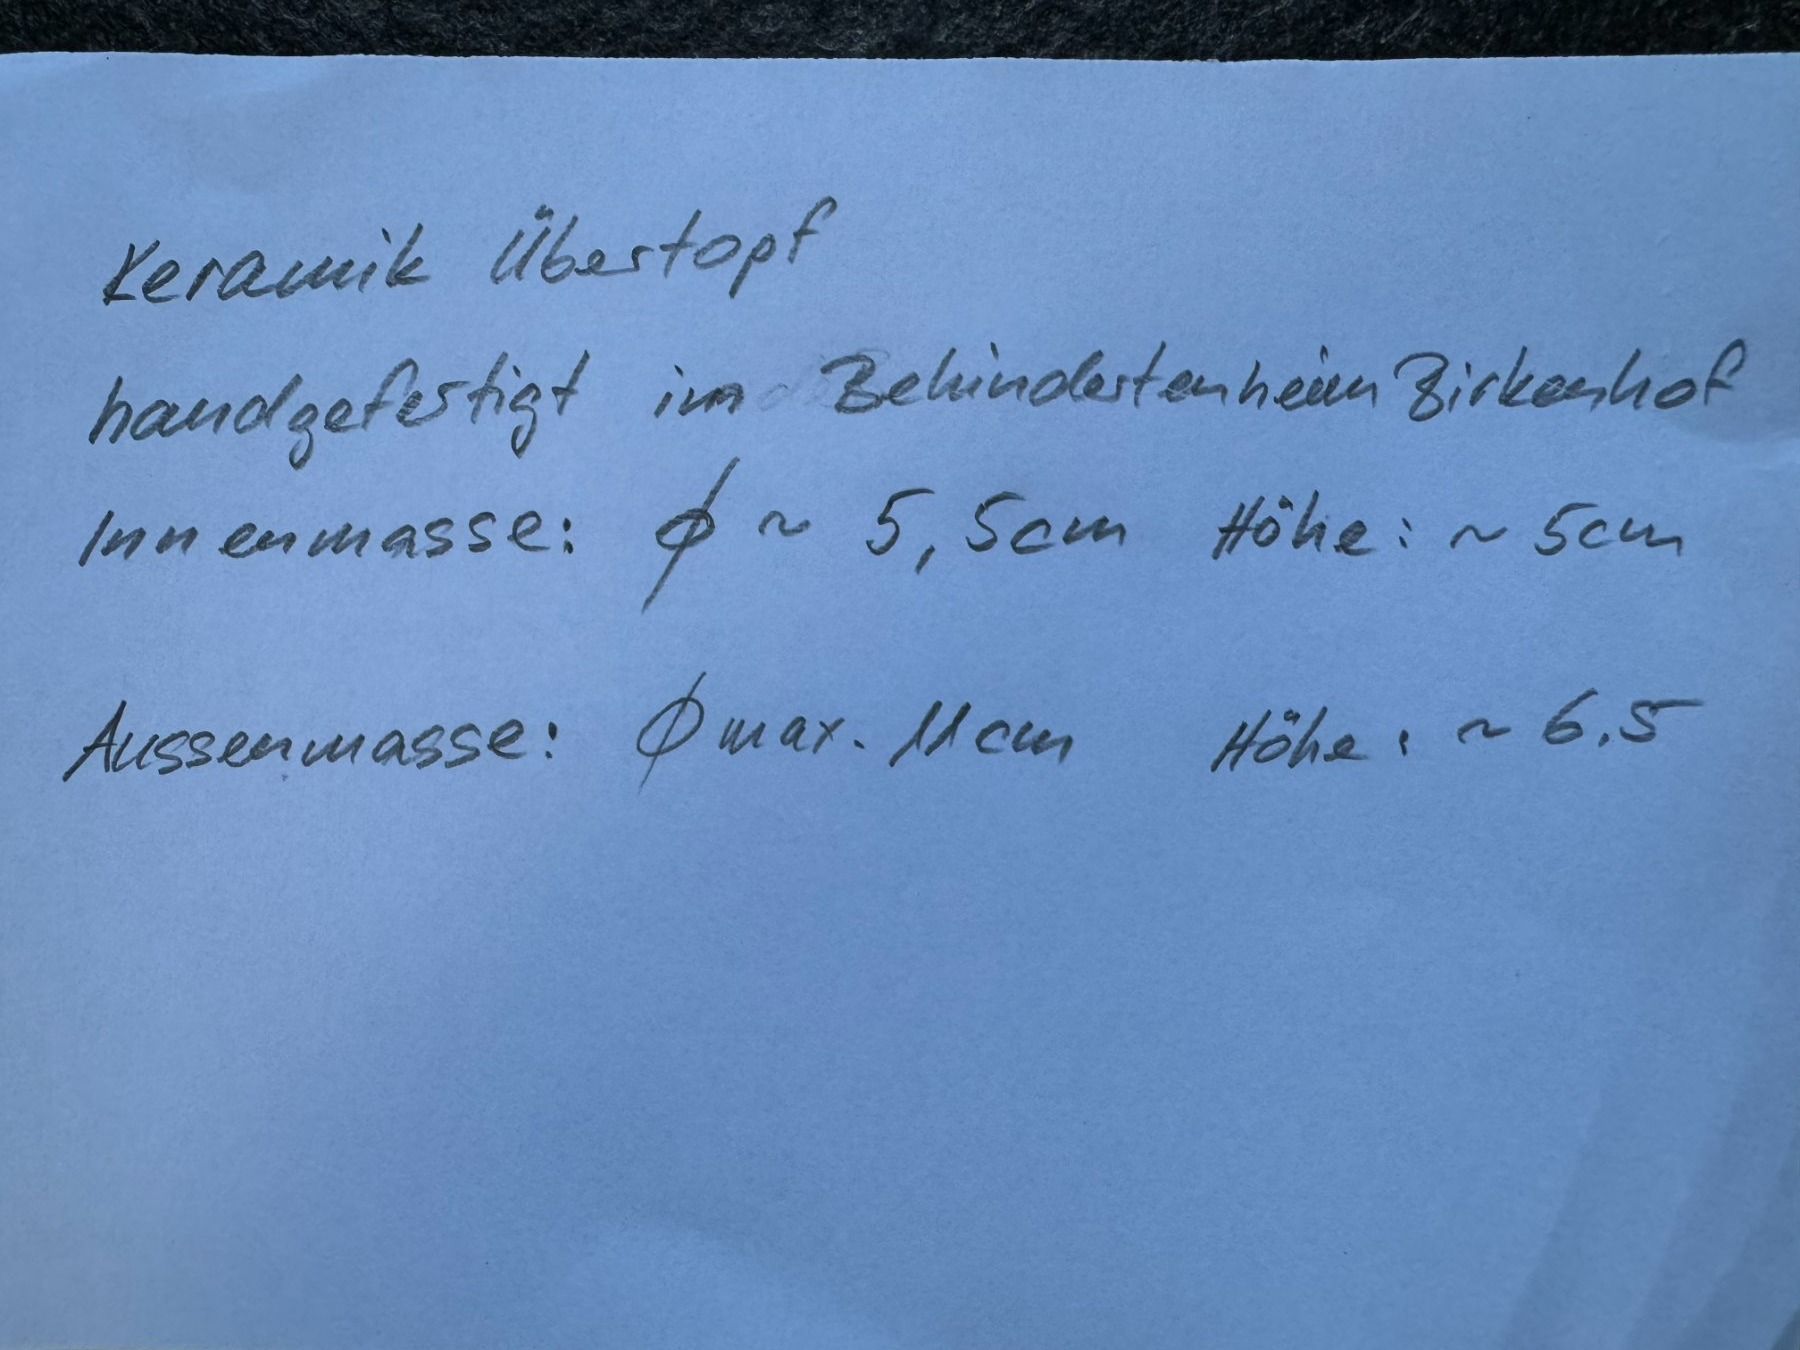 Keramik Übertopf
handgefertigt im Behindertenheim Birkenhof
Innenmasse: ϕ ~ 5,5cm Höhe: ~ 5cm
Aussenmasse: ϕ max. 11cm Höhe: ~ 6.5